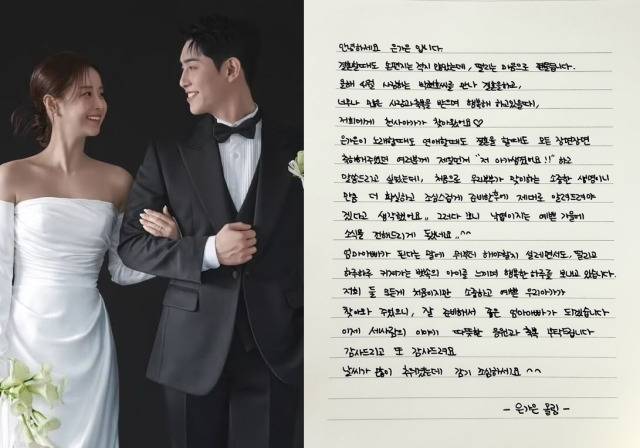 안녕하세요 은가은 입니다.
결혼할때도 손편지는 적지 않았는데, 떨리는 마음으로 적어봅니다.
올해 4월 사랑하는 박현호씨를 만나 결혼을하고,
너무나 많은 사랑과축복을 받으며 행복해 하고있을때,
저희에게 천사아가가 찾아왔어요♡
은가은이 노래할때도 연애할때도 결혼을 할때도 모든 장면장면
축하해주셨던 여러분께 제일먼저 "저 아기생겼어요!!" 하고
말씀드리고 싶었는데, 처음으로 우리부부가 맞이하는 소중한 생명이니
만큼 더 확실하고 조심스럽게 준비한후에 제대로 알려드려야
겠다고 생각했어요.. 그러다 보니 낙엽이지는 예쁜 가을에
소식을 전해드리게 됐네요..^^
엄마아빠가 된다는 말에 뭐부터 해야할지 설레면서도, 떨리고
하루하루 커져가는 뱃속의 아이를 느끼며 행복한 하루를 보내고 있습니다.
저희 둘 모든게 처음이지만 소중하고 예쁜 우리아가가
찾아와 주었으니, 잘 준비해서 좋은 엄마아빠가 되겠습니다
이제 세사람의 이야기 따뜻한 응원과 축복 부탁드립니다
감사드리고 또 감사드려요
날씨가 많이 추워졌는데 감기 조심하세요 ^^
- 은가은 올림 -